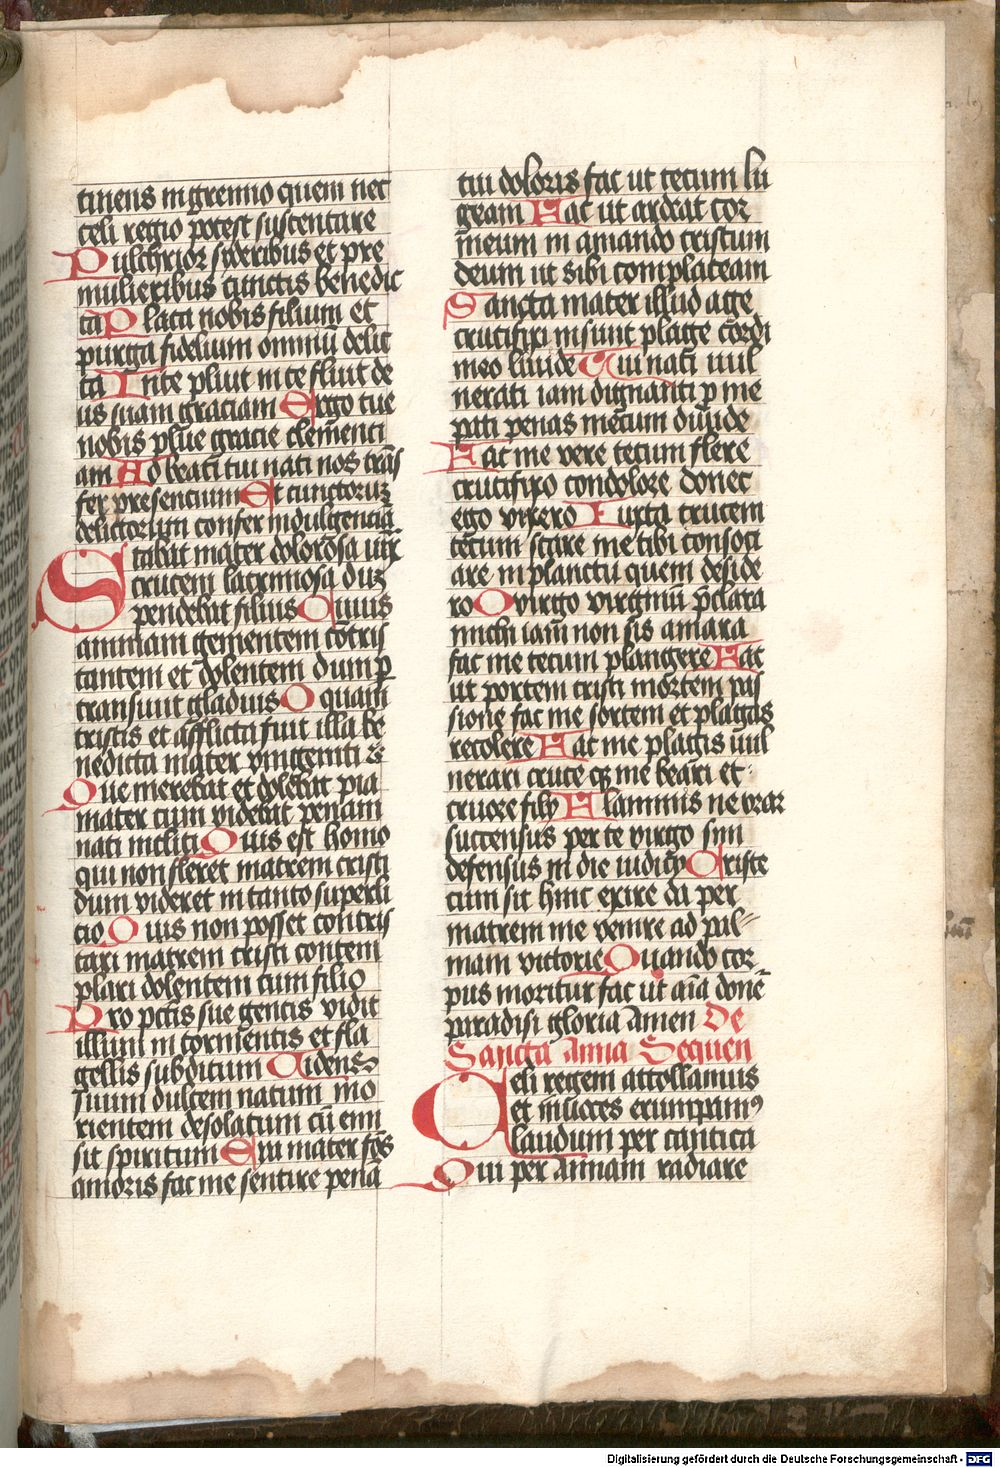 tinens in gremio quem nec
celi regio potest sustentare
Pulchrior sideribus et pre
mulieribus cunctis benedic
ta Placa nobis filium et
purga fidelium omniū delic
ta In te pluit in te fluit de
us suam graciam Ergo tue
nobis plue gracie clementi
am Ad beati tui nati nos trās
fer presentium Et cunctorum
delictorum confer indulgenciā
Stabat mater dolorosa iux
crucem lacrimosa duꝫ
pendebat filius Cuius
animam gementem cōtris
tantem et dolentem dum ꝑ
transiuit gladius O quam
tristis et afflicta fuit illa be
nedicta mater vnigeniti &
Que merebat et dolebat pia
mater cum videbat penam
nati incliti Quis est homo
qui non fleret matrem cristi
dum videret in tanto suppli
cio Quis non posset contris
tari matrem cristi contem
plari dolentem cum filio
Pro pctīs sue gentis vidit
illum in tormentis et fla
gellis subditum Videns
suum dulcem natum mo
rientem desolatum cū emi
sit spiritum Eya mater fōs
amoris fac me sentire penā
tui doloris fac ut tecum lu
geam Fac ut ardeat cor
meum in amando cristum
deum ut sibi complaceam
Sancta mater illud age
crucifixi insunt plage cordi
meo liuide Tui nati uul
nerati iam dignanti ꝑ me
pati penas mecum diuide
Fac me vere tecum flere
crucifixo condolore donec
ego vixero Iuxta crucem
tecum stare me tibi consoci
are in planctu quem deside
ro O virgo virginū p̄clara
michi iam non sis amara
fac me tecum plangere Fac
ut portem cristi mortem pas
sione fac me sortem et plagas
recolere Fac me plagis uul
nerari cruce qꝫ me beari et
cruore filij Flammis ne vrar
succensus per te virgo sim
defensus in die iudicij Criste
cum sit hinc exire da per
matrem me venire ad pal-
mam victorie Quando cor-
pus moritur fac ut aīa donē
paradisi gloria Amen De
Sancta Anna Sequen
Celi regem attollamus
et in uoces erumpamꝰ
laudum per cantica
Qui per Annam radiare
Digitalisierung gefördert durch die Deutsche Forschungsgemeinschaft - DFG